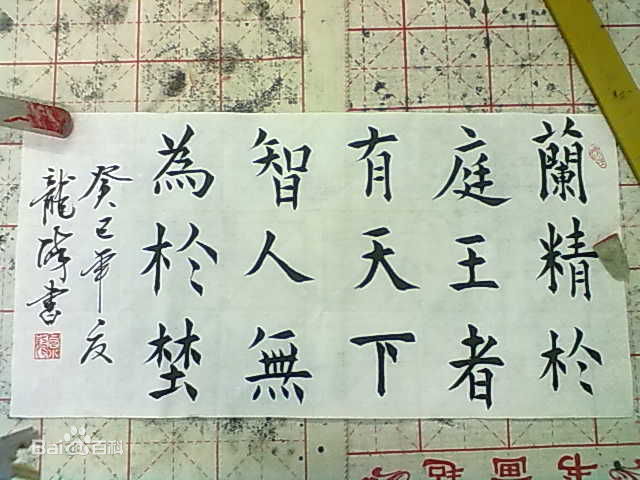 蘭精於
庭王者
有天下
智人無
為於埜
癸巳年夏
龍峰書
Bai百科